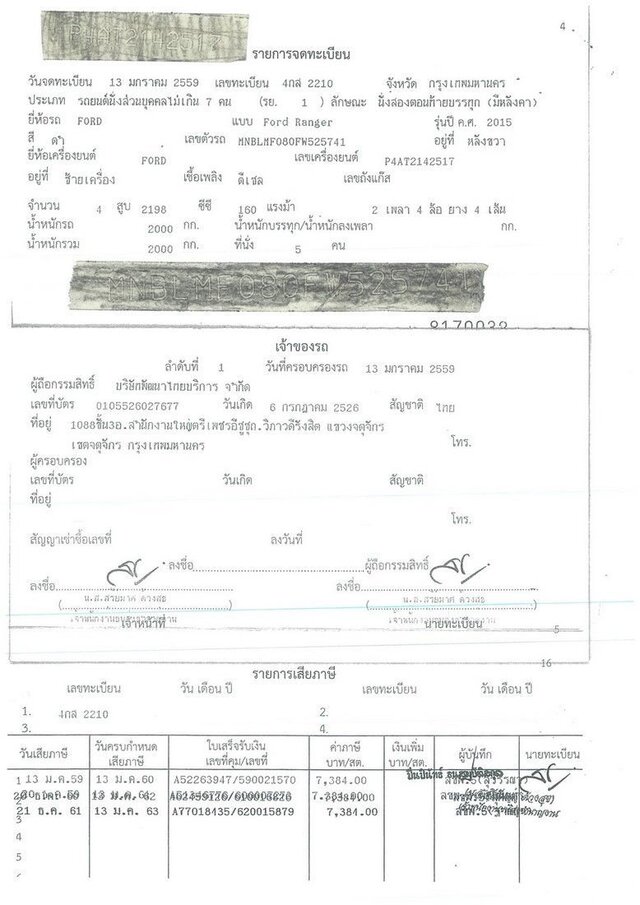 P4AT2142517
4
รายการจดทะเบียน
วันจดทะเบียน 13 มกราคม 2559 เลขทะเบียน 4กส 2210 จังหวัด กรุงเทพมหานคร
ประเภท รถยนต์นั่งส่วนบุคคลไม่เกิน 7 คน (รย. 1 ) ลักษณะ นั่งสองตอนท้ายบรรทุก (มีหลังคา)
ยี่ห้อรถ FORD แบบ Ford Ranger รุ่นปี ค.ศ. 2015
สี ดำ เลขตัวรถ MNBLMF080FW525741 อยู่ที่ หลังขวา
ยี่ห้อเครื่องยนต์ FORD เลขเครื่องยนต์ P4AT2142517
อยู่ที่ ซ้ายเครื่อง เชื้อเพลิง ดีเซล เลขถังแก๊ส
จำนวน 4 สูบ 2198 ซีซี 160 แรงม้า 2 เพลา 4 ล้อ ยาง 4 เส้น
น้ำหนักรถ 2000 กก. น้ำหนักบรรทุก/น้ำหนักลงเพลา กก.
น้ำหนักรวม 2000 กก. ที่นั่ง 5 คน
MNBLMF080FW525741
เจ้าของรถ
ลำดับที่ 1 วันที่ครอบครองรถ 13 มกราคม 2559
ผู้ถือกรรมสิทธิ์ บริษัทพัฒนาไทยบริการ จำกัด
เลขที่บัตร 0105526027677 วันเกิด 6 กรกฎาคม 2526 สัญชาติ ไทย
ที่อยู่ 1088ชั้น3อ.สำนักงานใหญ่ตรีเพชรอีซูซุถ.วิภาวดีรังสิต แขวงจตุจักร
เขตจตุจักร กรุงเทพมหานคร โทร.
ผู้ครอบครอง
เลขที่บัตร วันเกิด สัญชาติ
ที่อยู่
โทร.
สัญญาเช่าซื้อเลขที่ ลงวันที่
ลงชื่อ ผู้ถือกรรมสิทธิ์
ลงชื่อ ลงชื่อ
เจ้าหน้าที่ นายทะเบียน
5
16
รายการเสียภาษี
เลขทะเบียน วัน เดือน ปี เลขทะเบียน วัน เดือน ปี
1. 4กส 2210 2.
3. 4.
วันเสียภาษี วันครบกำหนดเสียภาษี ใบเสร็จรับเงิน เลขที่คุม/เลขที่ ค่าภาษี บาท/สต. เงินเพิ่ม บาท/สต. ผู้บันทึก นายทะเบียน
1 13 ม.ค.59 13 ม.ค.60 A52263947/590021570 7,384.00
2
21 ธ.ค. 61 13 ม.ค. 63 A77018435/620015879 7,384.00
3
4
5
6